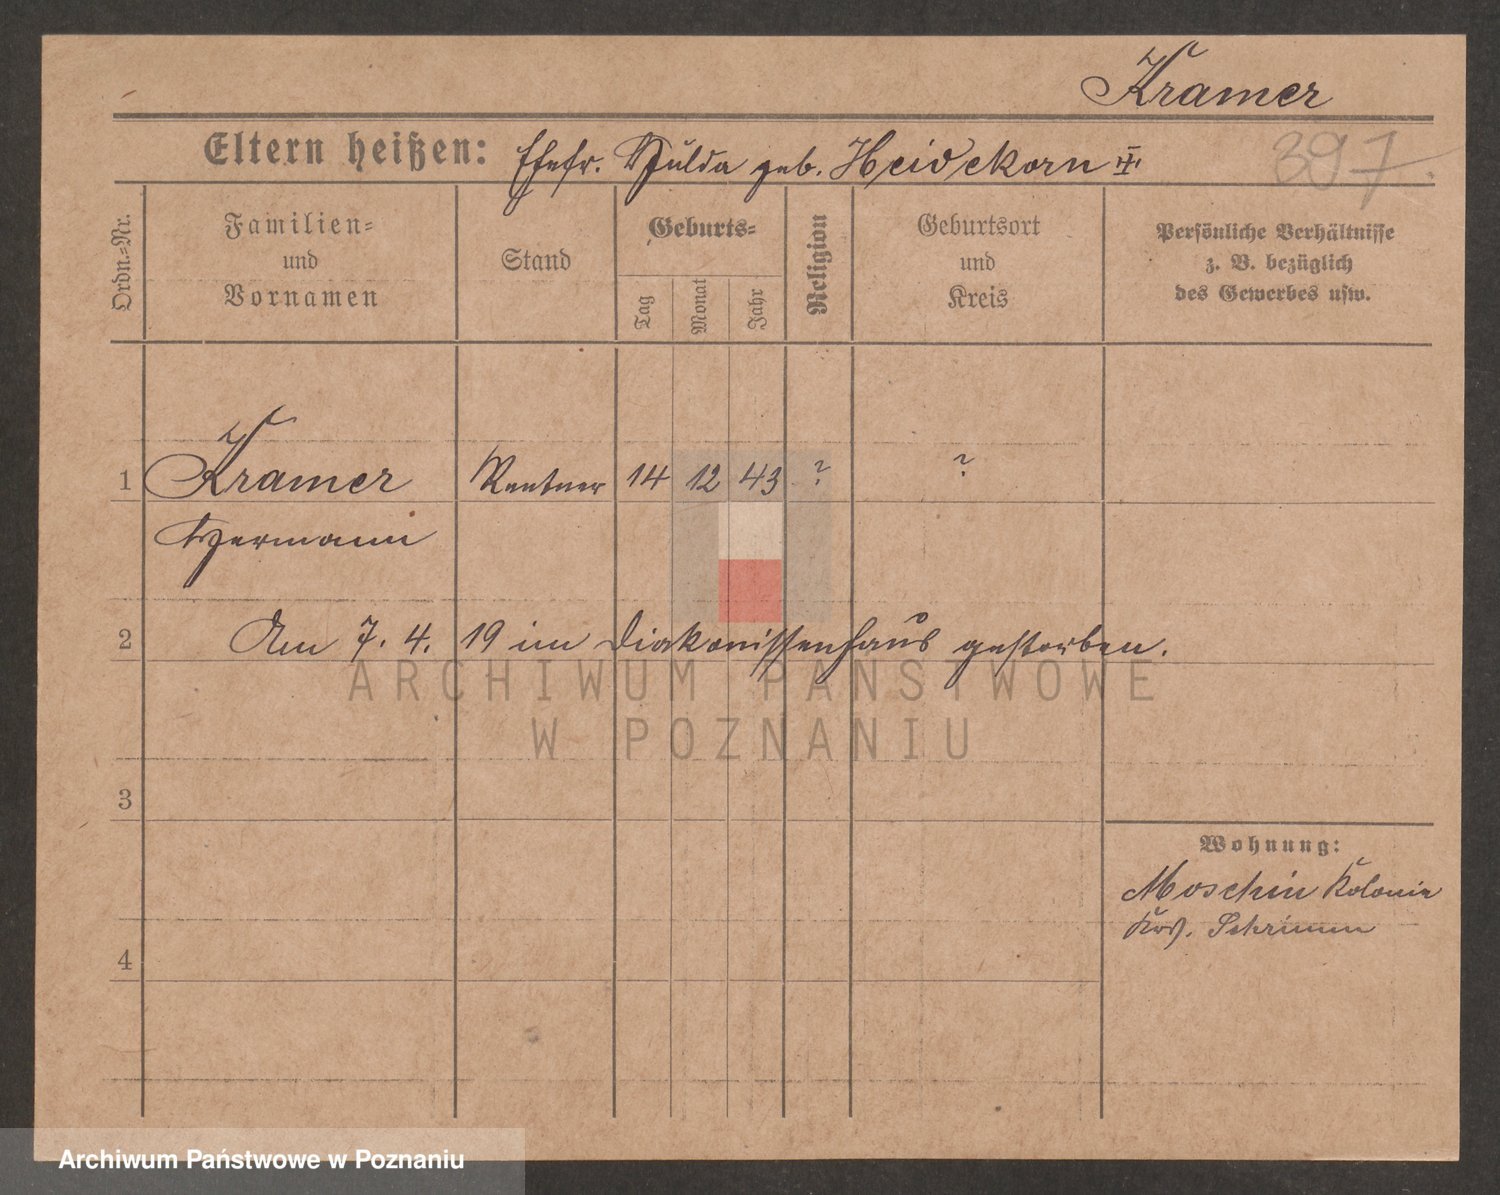 Kramer
Eltern heißen: Ehefr. Hulda geb. Heidekorn
397.
Ordn.-Nr.
Familien-
und
Vornamen
Stand
Geburts-
Tag
Monat
Jahr
Religion
Geburtsort
und
Kreis
Persönliche Verhältnisse
z. B. bezüglich
des Gewerbes usw.
1 Kramer Rentner 14 12 43 ? ?
Hermann
2 Am 7. 4. 19 im Diakonissenhaus gestorben.
ARCHIWUM PAŃSTWOWE
W POZNANIU
3
Wohnung:
Moschin Kolonie
Krs. Schrimm
4
Archiwum Państwowe w Poznaniu